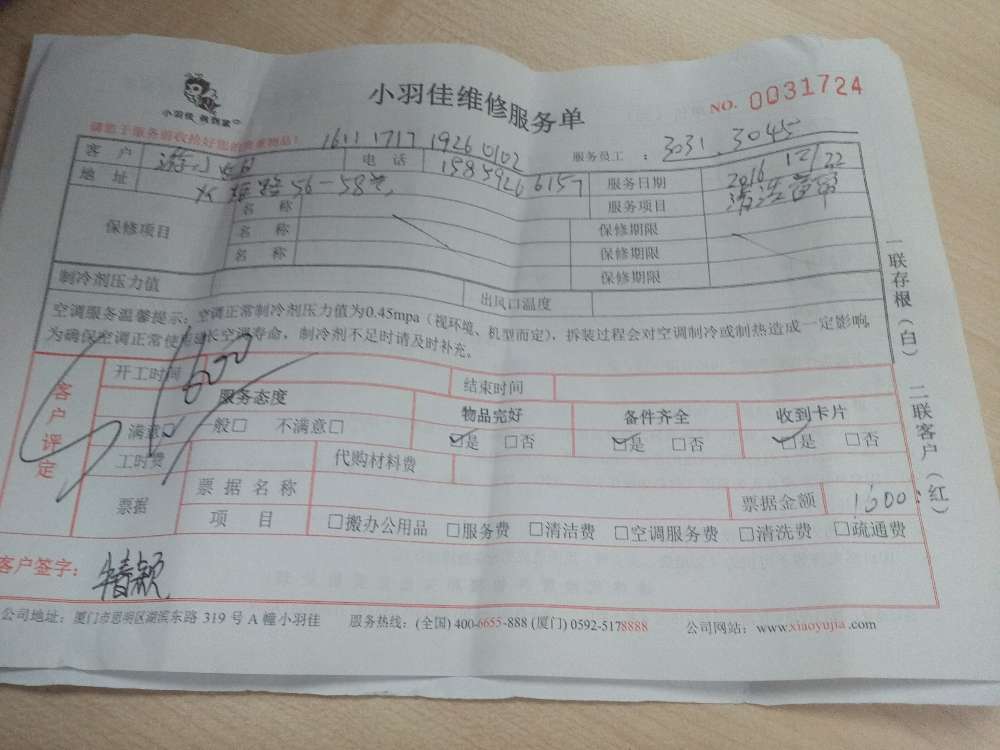 小羽佳维修服务单
NO. 0031724
小羽佳 帮到家
请您于服务前收拾好您的贵重物品!
1611 1717 1926 0102
服务员工：3031、3045
客户 电话 15859266157 服务日期 2016 12/22
地址 56-58号 服务项目 清洗
保修项目 名称 保修期限
名称 保修期限
名称 保修期限
制冷剂压力值 出风口温度
空调服务温馨提示：空调正常制冷剂压力值为0.45mpa（视环境、机型而定），拆装过程会对空调制冷或制热造成一定影响，
为确保空调正常使用 长空调寿命，制冷剂不足时请及时补充。
客户评定
开工时间 结束时间
1600
服务态度 物品完好 备件齐全 收到卡片
满意□ 一般□ 不满意□ ☑是 □否 ☑是 □否 ☑是 □否
工时费 代购材料费
票据 票据名称 票据金额 1600
项目 □搬办公用品 □服务费 □清洁费 □空调服务费 □清洗费 □疏通费
客户签字：
公司地址：厦门市思明区湖滨东路 319 号 A 幢小羽佳 服务热线：(全国) 400-6655-888 (厦门) 0592-5178888 公司网站：www.xiaoyujia.com
一联存根（白） 二联客户（红）